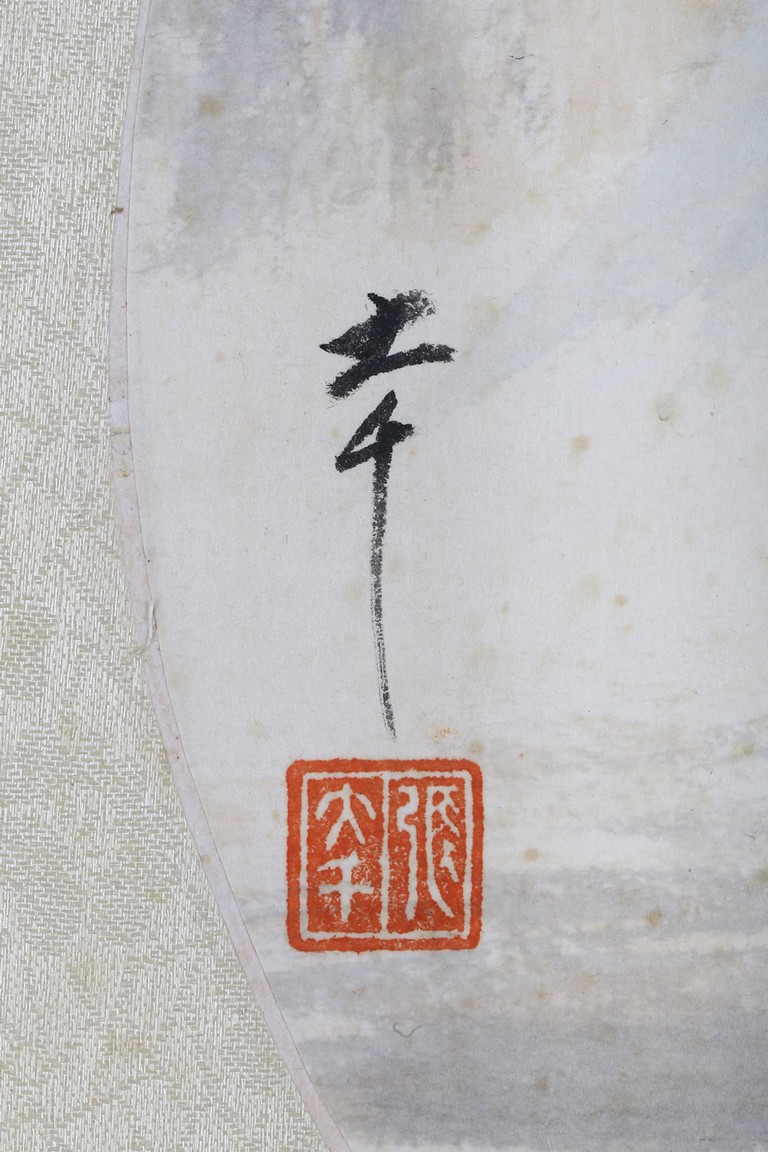 大千
張大千